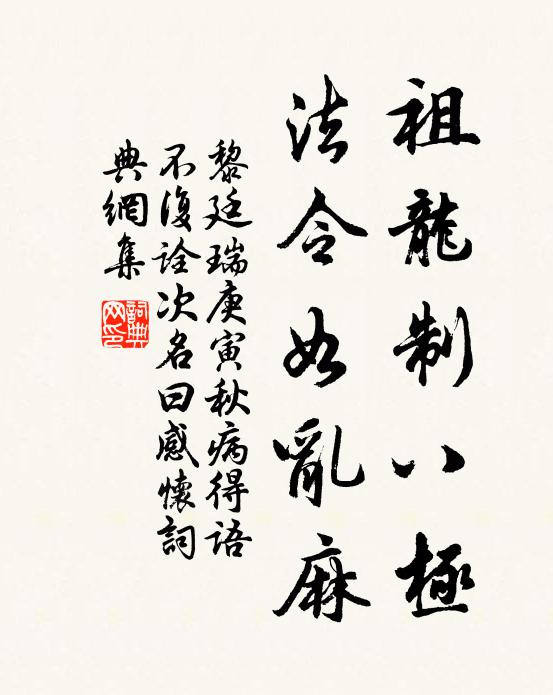 祖龍制八極
法令如亂麻
黎廷瑞庚寅秋病得語
不復詮次名曰感懷詞
典網集
詞典
网印